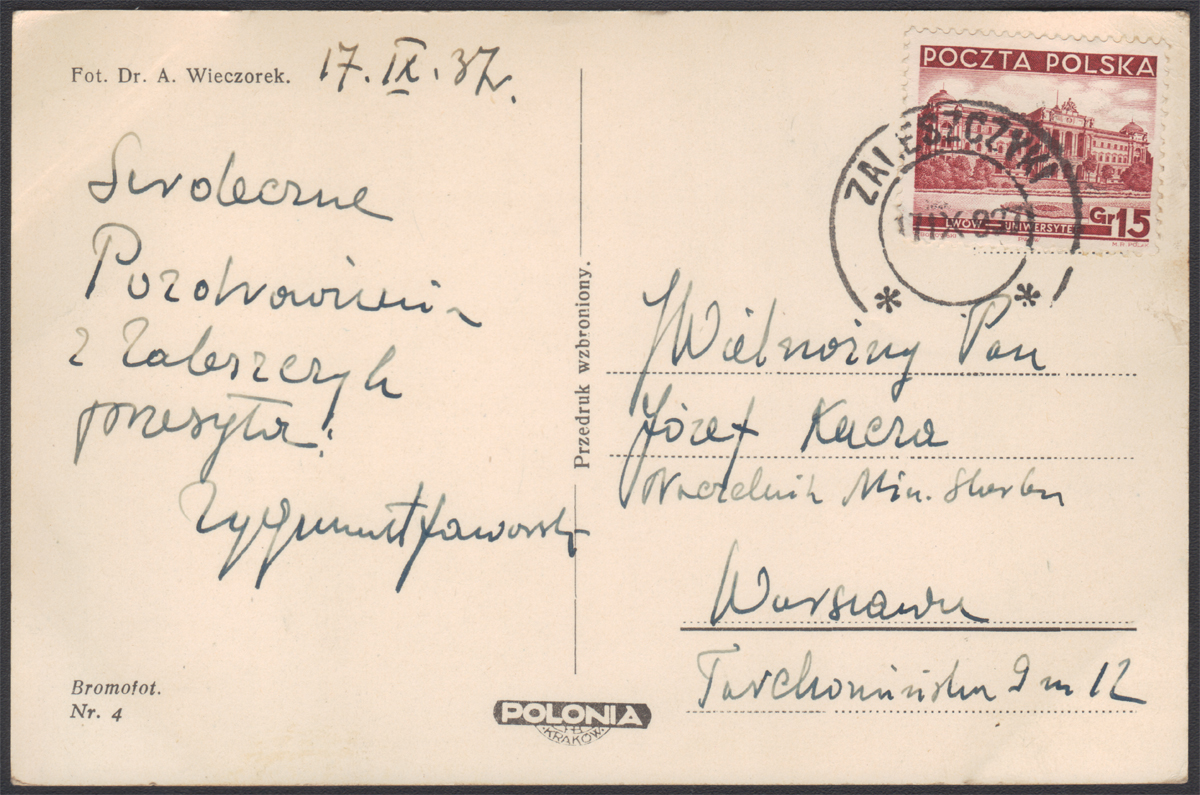 Fot. Dr. A. Wieczorek.
17. IX. 37.
Serdeczne
Pozdrowienia
z Zaleszczyk
przesyła.
Zygmunt Jaworski
Bromofot.
Nr. 4
Przedruk wzbroniony.
POLONIA
KRAKÓW
POCZTA POLSKA
LWÓW UNIWERSYTET
Gr 15
ZALESZCZYKI
17 IX 937
Wielmożny Pan
Józef Kacza
Naczelnik Min. Skarbu
Warszawa
Tarchomińska 9 m 12